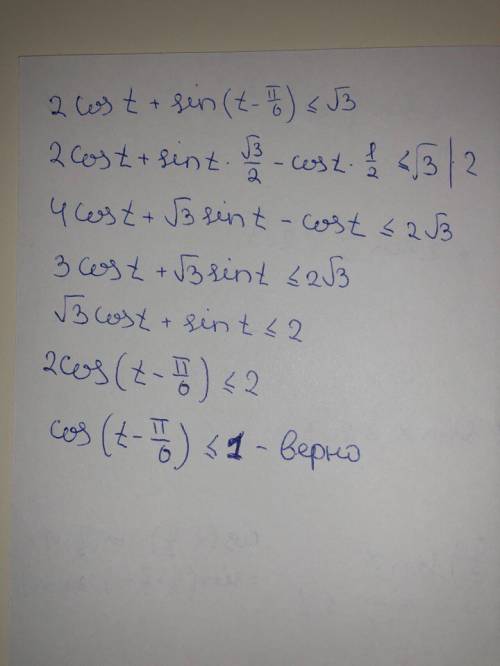 2cos t + sin(t - π/6) ≤ √3
2cos t + sin t · √3/2 - cos t · 1/2 ≤ √3 | · 2
4cos t + √3 sin t - cos t ≤ 2√3
3cos t + √3 sin t ≤ 2√3
√3 cos t + sin t ≤ 2
2cos(t - π/6) ≤ 2
cos(t - π/6) ≤ 1 - верно